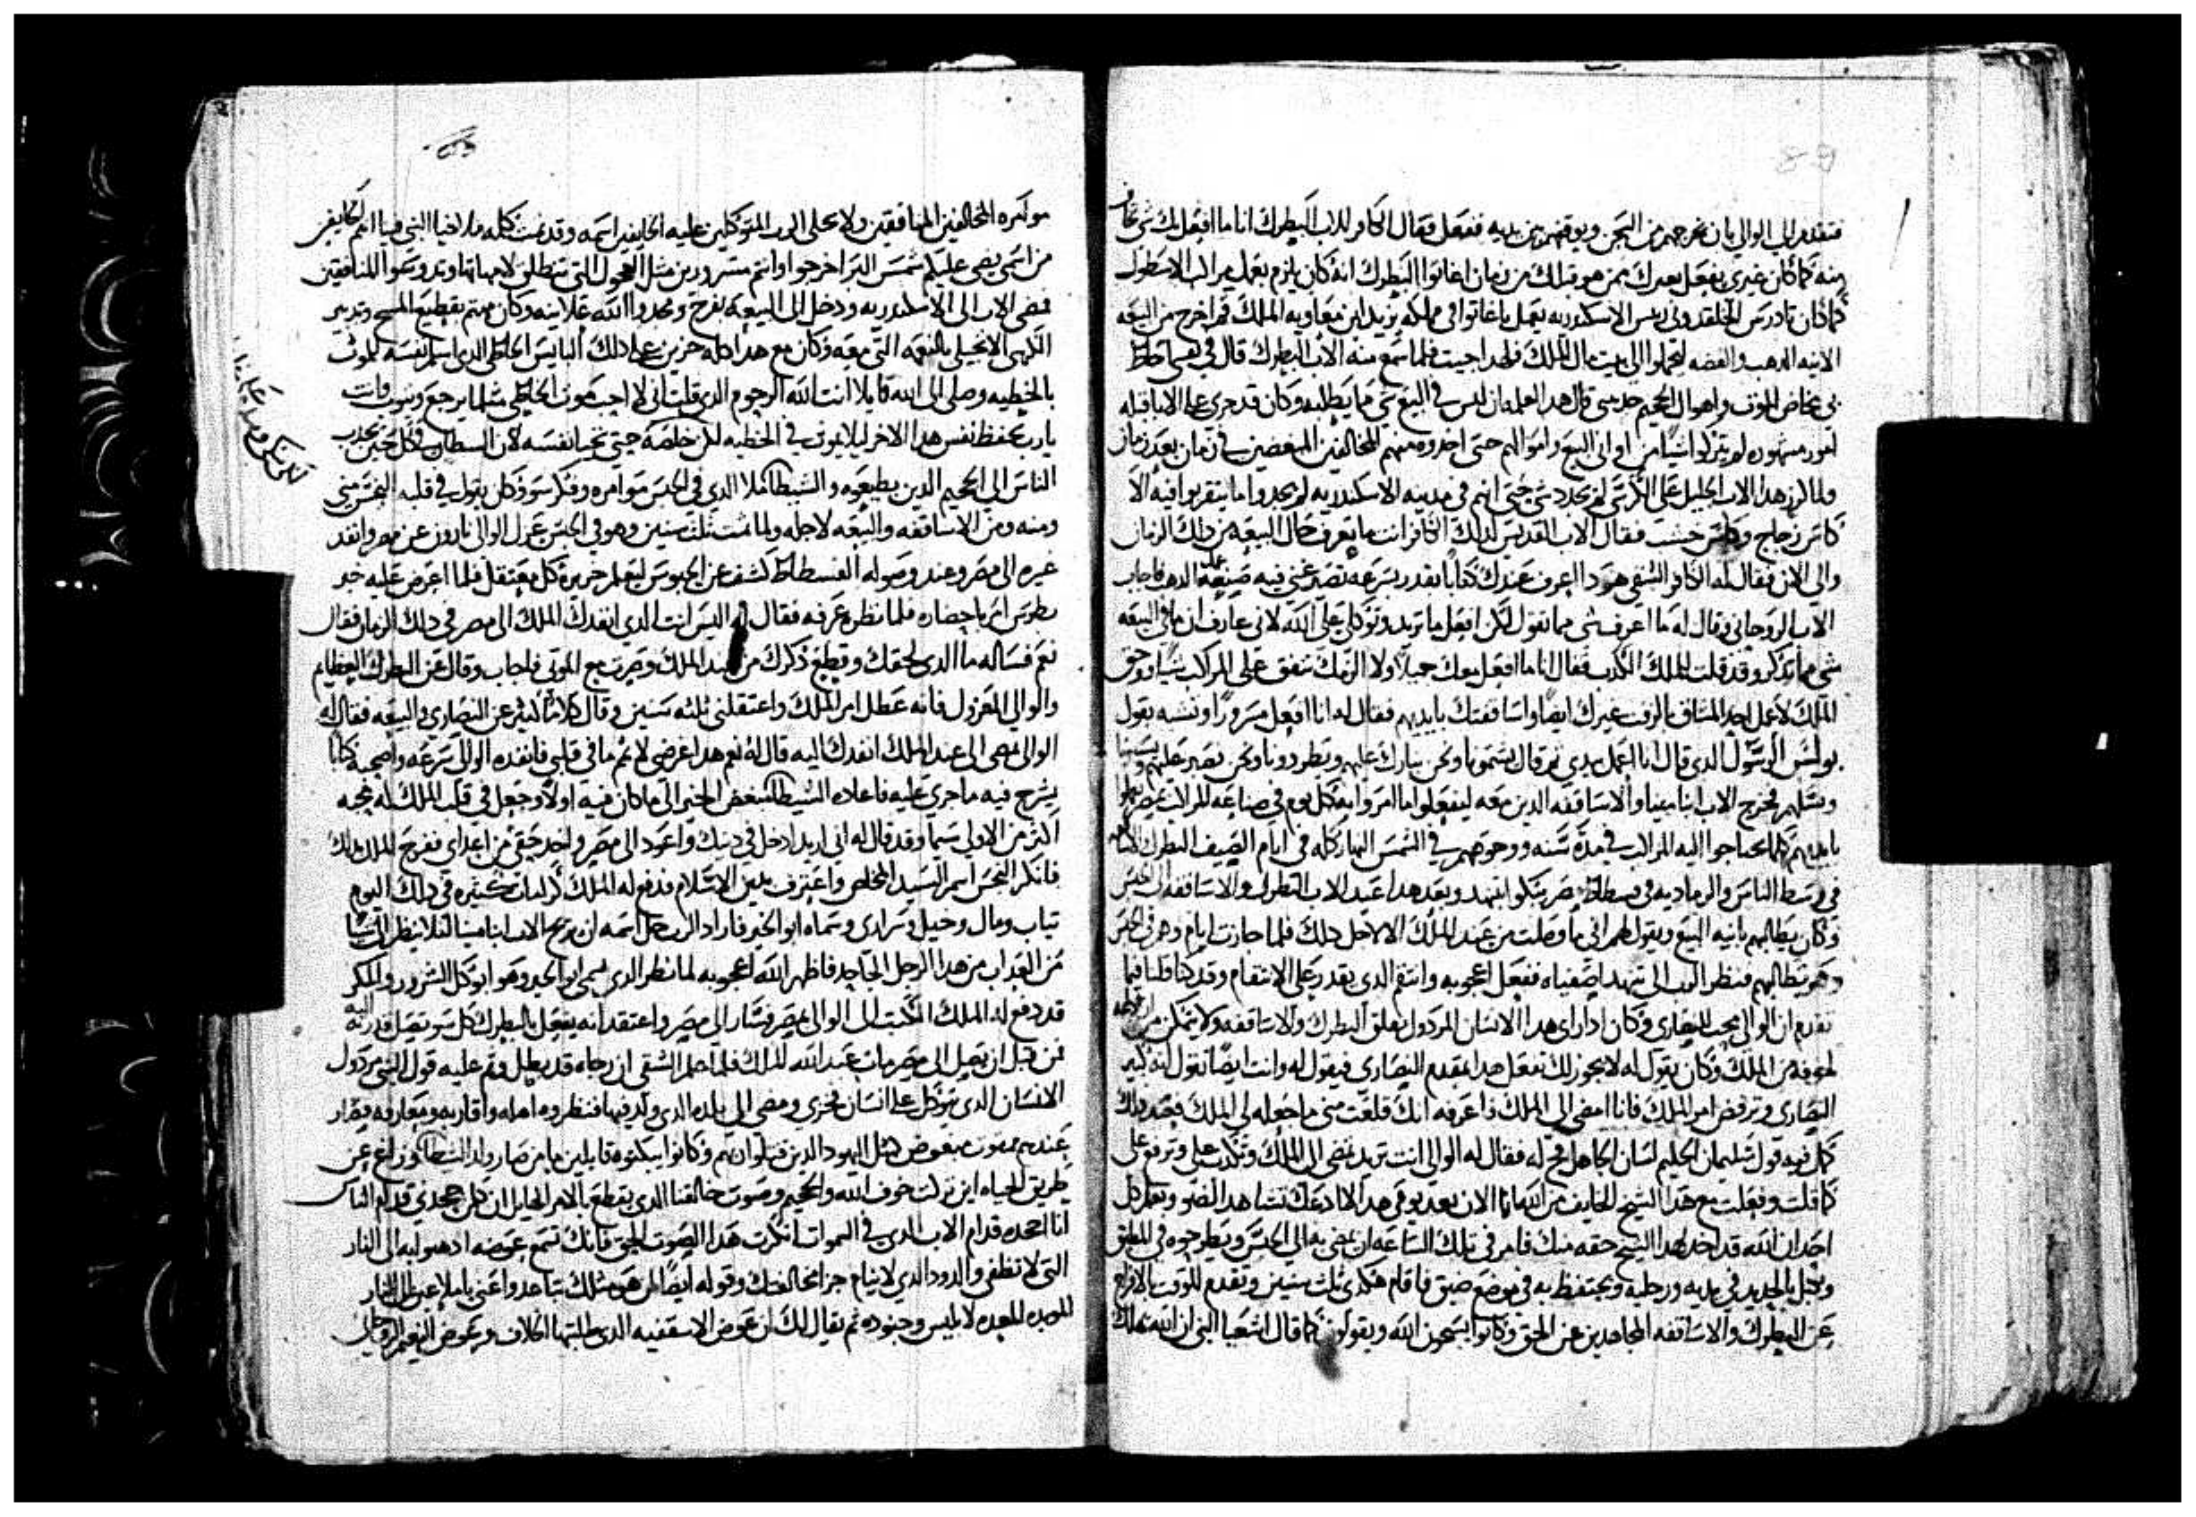 فتقدم الى الوالي بان يخرجهم من السجن ويوقفهم بين يديه ففعل فقال الكافر للاب البطرك انا ما افعل بك شي
منه كما كان غيري يفعل بغيرك ممن هو قبلك من زمان اغاتوا البطرك انه كان يلزم بعمل مراكب الاسطول
كما كان تادرس الخلقدوني ريس الاسكندريه يعمل باغاتوا في مملكه يزيد ابن معاويه الملك فمر اخرج من البيعه
الانيه الدهب والفضه لتحملوا الى بيت مال الملك فلما سمع منه الاب البطرك قال في نفسه
قال هدا لعلمه ان ليس في البيع شي مما يطلبه وكان قد جرى على الابا قبله
امور مشهوره لم يتركوا شيا من اواني البيع واموالهم حتى اخدوه منهم المخالفين المبغضين في زمان بعد زمان
ولما كرز هدا الاب الجليل على الكرسي لم يجدد شي حتى انهم في مدينه الاسكندريه لم يجدوا ما يتقربوا فيه الا
كاس زجاج وكاس خشب فقال الاب القديس لدلك الكافر انت ما تعرف حال البيعه من دلك الزمان
والى الان فقال له الكافر الشقي هودا اعرف عندك كتابا تقدر بسرعه تصير غني فيه صنعه الدهب فاجاب
الاب الروحاني وقال له ما اعرف شي مما تقول لكن افعل ما تريد وتوكلي على الله لاني عارف ان ما في البيعه
شي مما تدكر وقد قلت للملك الكدب فقال انا ما افعل معك جميلا ولا الزمك تنفق على المراكب شيا وحق
الملك لا عمل احد المشاق بالزفت غيرك ايضا واساقفتك بايديهم فقال له انا افعل مسرورا وتشبه بقول
بولس الرسول الدي قال انا اعمل بيدي ثم قال يشتمونا ونحن نبارك عليهم ويطردونا ونحن نصبر عليهم
ونسلهم فخرج الاب انبا مينا والاساقفه الدين معه ليفعلوا ما امروا به كل يوم في صناعه المراكب بمصر
بايديهم كلما يحتاجوا اليه المراكب في مدة سنه ووجوههم في الشمس النهار كله في ايام الصيف البطرك
في وسط الناس والرماديه في فسطاط مصر وبعد هدا عيد الاب البطرك والاساقفه الى الحبس
وكان يطالبهم بانيه البيع ويقول لهم اني ما وصلت من عند الملك الا لاجل دلك فلما جازت ايام وهم في الحبس
وهو يطالبهم فنظر الرب الى تنهد اصفياه ففعل اعجوبه وانتقم الدي يقدر على الانتقام وقد كنا قلنا فيما
تقدم ان الوالي محب للنصارى وكان ادا راى هدا الانسان المردول يقلق البطرك والاساقفه ولا يتمكن من
لخوفه من الملك وكان يقول له لا يجوز لك تفعل هدا بمقدم النصارى فيقول له وانت ايضا تقول انه كبير
النصارى وترفض امر الملك فانا امضي الى الملك واعرفه انك قلعت مني ما جعله لي الملك فعند دلك
كمل فيه قول سليمان الحكيم لسان الجاهل فخ له فقال له الوالي انت تريد تمضي الى الملك وتكدب علي وترفع علي
كما قلت وفعلت مع هدا الشيخ الخايف من الله انا الان بعد يومي هدا لا ادعك تشاهد الضو ويعلم كل
احد ان الله قد اخد لهدا الشيخ حقه منك فامر في تلك الساعه ان يمضي به الى الحبس ويطرحوه في المطبق
ويكبل بالحديد في يديه ورجليه ويحتفظ به في موضع ضيق فاقام هكدى ثلث سنين وتقدم للوقت بالافراج
عن البطرك والاساقفه المجاهدين عن الحق وكانوا يسبحون الله ويقولون كما قال اشعيا النبي ان الله يهلك
موامره المخالفين المنافقين ولا يخلي الرب المتوكلين عليه الخايفين اسمه وقد تمت كلمه ملاخيا النبي فيا ايها الخايفين
من اسمي يضي عليكم شمس البر اخرجوا وانتم مسرورين مثل العجول التي تنطلق لامهاتها وتدوسوا المنافقين
فمضى الاب الى الاسكندريه ودخل الى البيعه بفرح ومجدوا الله علانيه وكان مهتم بقطيع المسيح وتدبير
الكهنه الانجيلي بالنعمه التي معه وكان مع هدا كله حزين على دلك البايس الخاطي الدي اسلم نفسه للموت
بالخطيه وصلى الى الله قايلا انت الله الرحوم الدي قلت اني لا احب موت الخاطي مثلما يرجع ويتوب وانت
يارب تحفظ نفس هدا الاخر ليلا يموت في الخطيه لكن خلصه حتى تحيا نفسه لان السطان في كل حين يجدب
الناس الى الجحيم الدين يطيعوه والشيطان ملا الدي في الحبس موامره وفكر سو وكان يقول في قلبه النجس مني
ومنه ومن الاساقفه والبيعه لاجله ولما تمت ثلث سنين وهو في الحبس عزل الوالي نارون عن مصر وانفد
غيره الى مصر وعند وصوله الفسطاط كشف عن الحبوس ليعلم جريره كل معتقل فلما اعرض عليه خبر
بطرس امر باحضاره فلما نظره عرفه فقال له اليس انت الدي انفدك الملك الى مصر في دلك الزمان فقال
نعم فساله ما الدي لحقك وقطع دكرك من عند الملك وصرت مع الموتى فاجاب وقال عن البطرك العظايم
والوالي المعزول فانه عطل امر الملك واعتقلني ثلثه سنين وقال كلاما كثير عن النصارى والبيعه فقال له
الوالي تمضي الى عند الملك انفدك اليه قال له نعم هدا غرضي لاتم ما في قلبي فانفده الوالي بسرعه واصحبه كتابا
يشرح فيه ما جرى عليه فاعاده الشيطان مبغض الخير الى ما كان فيه اولا وجعل في قلب الملك له محبه
اكثر من الاولى سيما وقد قال له اني اريد ادخل في دينك واعود الى مصر واخد حقي من اعداي ففرح الملك بدلك
فانكر النجس اسم السيد المخلص واعترف بدين الاسلام فدفع له الملك كرامات كثيره في دلك اليوم
تياب ومال وخيل وسراري وسماه ابو الخير فاراد الرب جل اسمه ان يريح الاب انبا مينا لئلا ينظر الى شيا
من العداب من هدا الرجل الجاحد فاظهر الله اعجوبه لما نظر الدي سمي ابو الخير وهو ابو كل الشرور والمكر
قد دفع له الملك الكتب الى الوالي بمصر فسار الى مصر واعتقد انه يفعل بالبطرك كل سو تصل قدرته اليه
فمن قبل ان يصل الى مصر مات عبد الله الملك فلما علم الشقي ان رجاه قد بطل وتم عليه قول النبي مردول
الانسان الدي يتوكل على انسان فخزي ومضى الى بلده الدي ولد فيها فنظروه اهله واقاربه ومعارفه فصار
عندهم ممقوت مبغوض مثل اليهود الدين قتلوا ربهم وكانوا يبكتوه قايلين يا من صار ولد الشيطان وزاغ عن
طريق الحياه اين تركت خوف الله والجحيم وصوت خالقنا الدي يقطع بالامر الجليل ان كل من جحدني قدام الناس
انا اجحده قدام الاب الدي في السموات انكرت هدا الصوت الحق فانك تسمع عوضه ادهبوا به الى النار
التي لا تطفى والدود الدي لا ينام جزا مخالفتك وقوله ايضا لمن هو مثلك تباعدوا عني يا ملاعين الى النار
الموبده المعده لابليس وجنوده ثم يقال لك ان عوض الاسقفيه الدي طلبتها اتلاف وعوض النعيم الروحاني